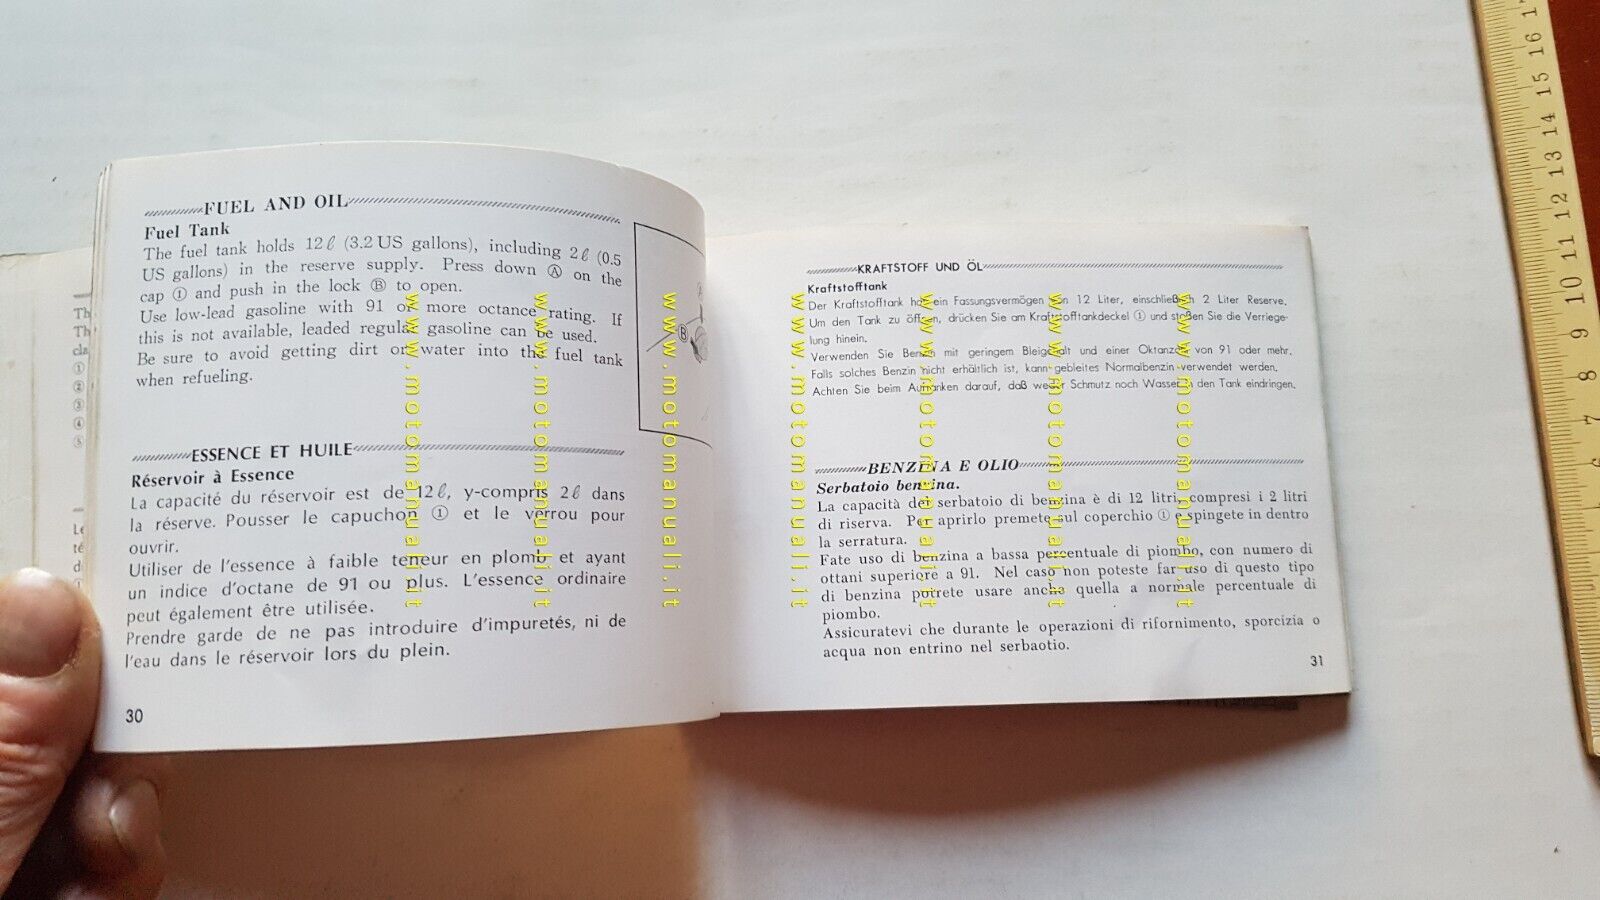 FUEL AND OIL
Fuel Tank
The fuel tank holds 12ℓ (3.2 US gallons), including 2ℓ (0.5
US gallons) in the reserve supply. Press down Ⓐ on the
cap ① and push in the lock Ⓑ to open.
Use low-lead gasoline with 91 or more octance rating. If
this is not available, leaded regular gasoline can be used.
Be sure to avoid getting dirt or water into the fuel tank
when refueling.
Ⓐ
Ⓑ
ESSENCE ET HUILE
Réservoir à Essence
La capacité du réservoir est de 12ℓ, y-compris 2ℓ dans
la réserve. Pousser le capuchon ① et le verrou pour
ouvrir.
Utiliser de l'essence à faible teneur en plomb et ayant
un indice d'octane de 91 ou plus. L'essence ordinaire
peut également être utilisée.
Prendre garde de ne pas introduire d'impuretés, ni de
l'eau dans le réservoir lors du plein.
30
KRAFTSTOFF UND ÖL
Kraftstofftank
Der Kraftstofftank hat ein Fassungsvermögen von 12 Liter, einschließlich 2 Liter Reserve.
Um den Tank zu öffnen, drücken Sie am Kraftstofftankdeckel ① und stoßen Sie die Verriege-
lung hinein.
Verwenden Sie Benzin mit geringem Bleigehalt und einer Oktanzahl von 91 oder mehr.
Falls solches Benzin nicht erhältlich ist, kann gebleites Normalbenzin verwendet werden.
Achten Sie beim Auftanken darauf, daß weder Schmutz noch Wasser in den Tank eindringen.
BENZINA E OLIO
Serbatoio benzina.
La capacità del serbatoio di benzina è di 12 litri, compresi i 2 litri
di riserva. Per aprirlo premete sul coperchio ① e spingete in dentro
la serratura.
Fate uso di benzina a bassa percentuale di piombo, con numero di
ottani superiore a 91. Nel caso non poteste far uso di questo tipo
di benzina potrete usare anche quella a normale percentuale di
piombo.
Assicuratevi che durante le operazioni di rifornimento, sporcizia o
acqua non entrino nel serbaotio.
31
www.motomanuali.it
www.motomanuali.it
www.motomanuali.it
www.motomanuali.it
www.motomanuali.it
www.motomanuali.it
www.motomanuali.it
Th
Th
cla
①
②
③
④
⑤
Le
té
d
17
16
15
14
13
12
11
10
9
8
7
6